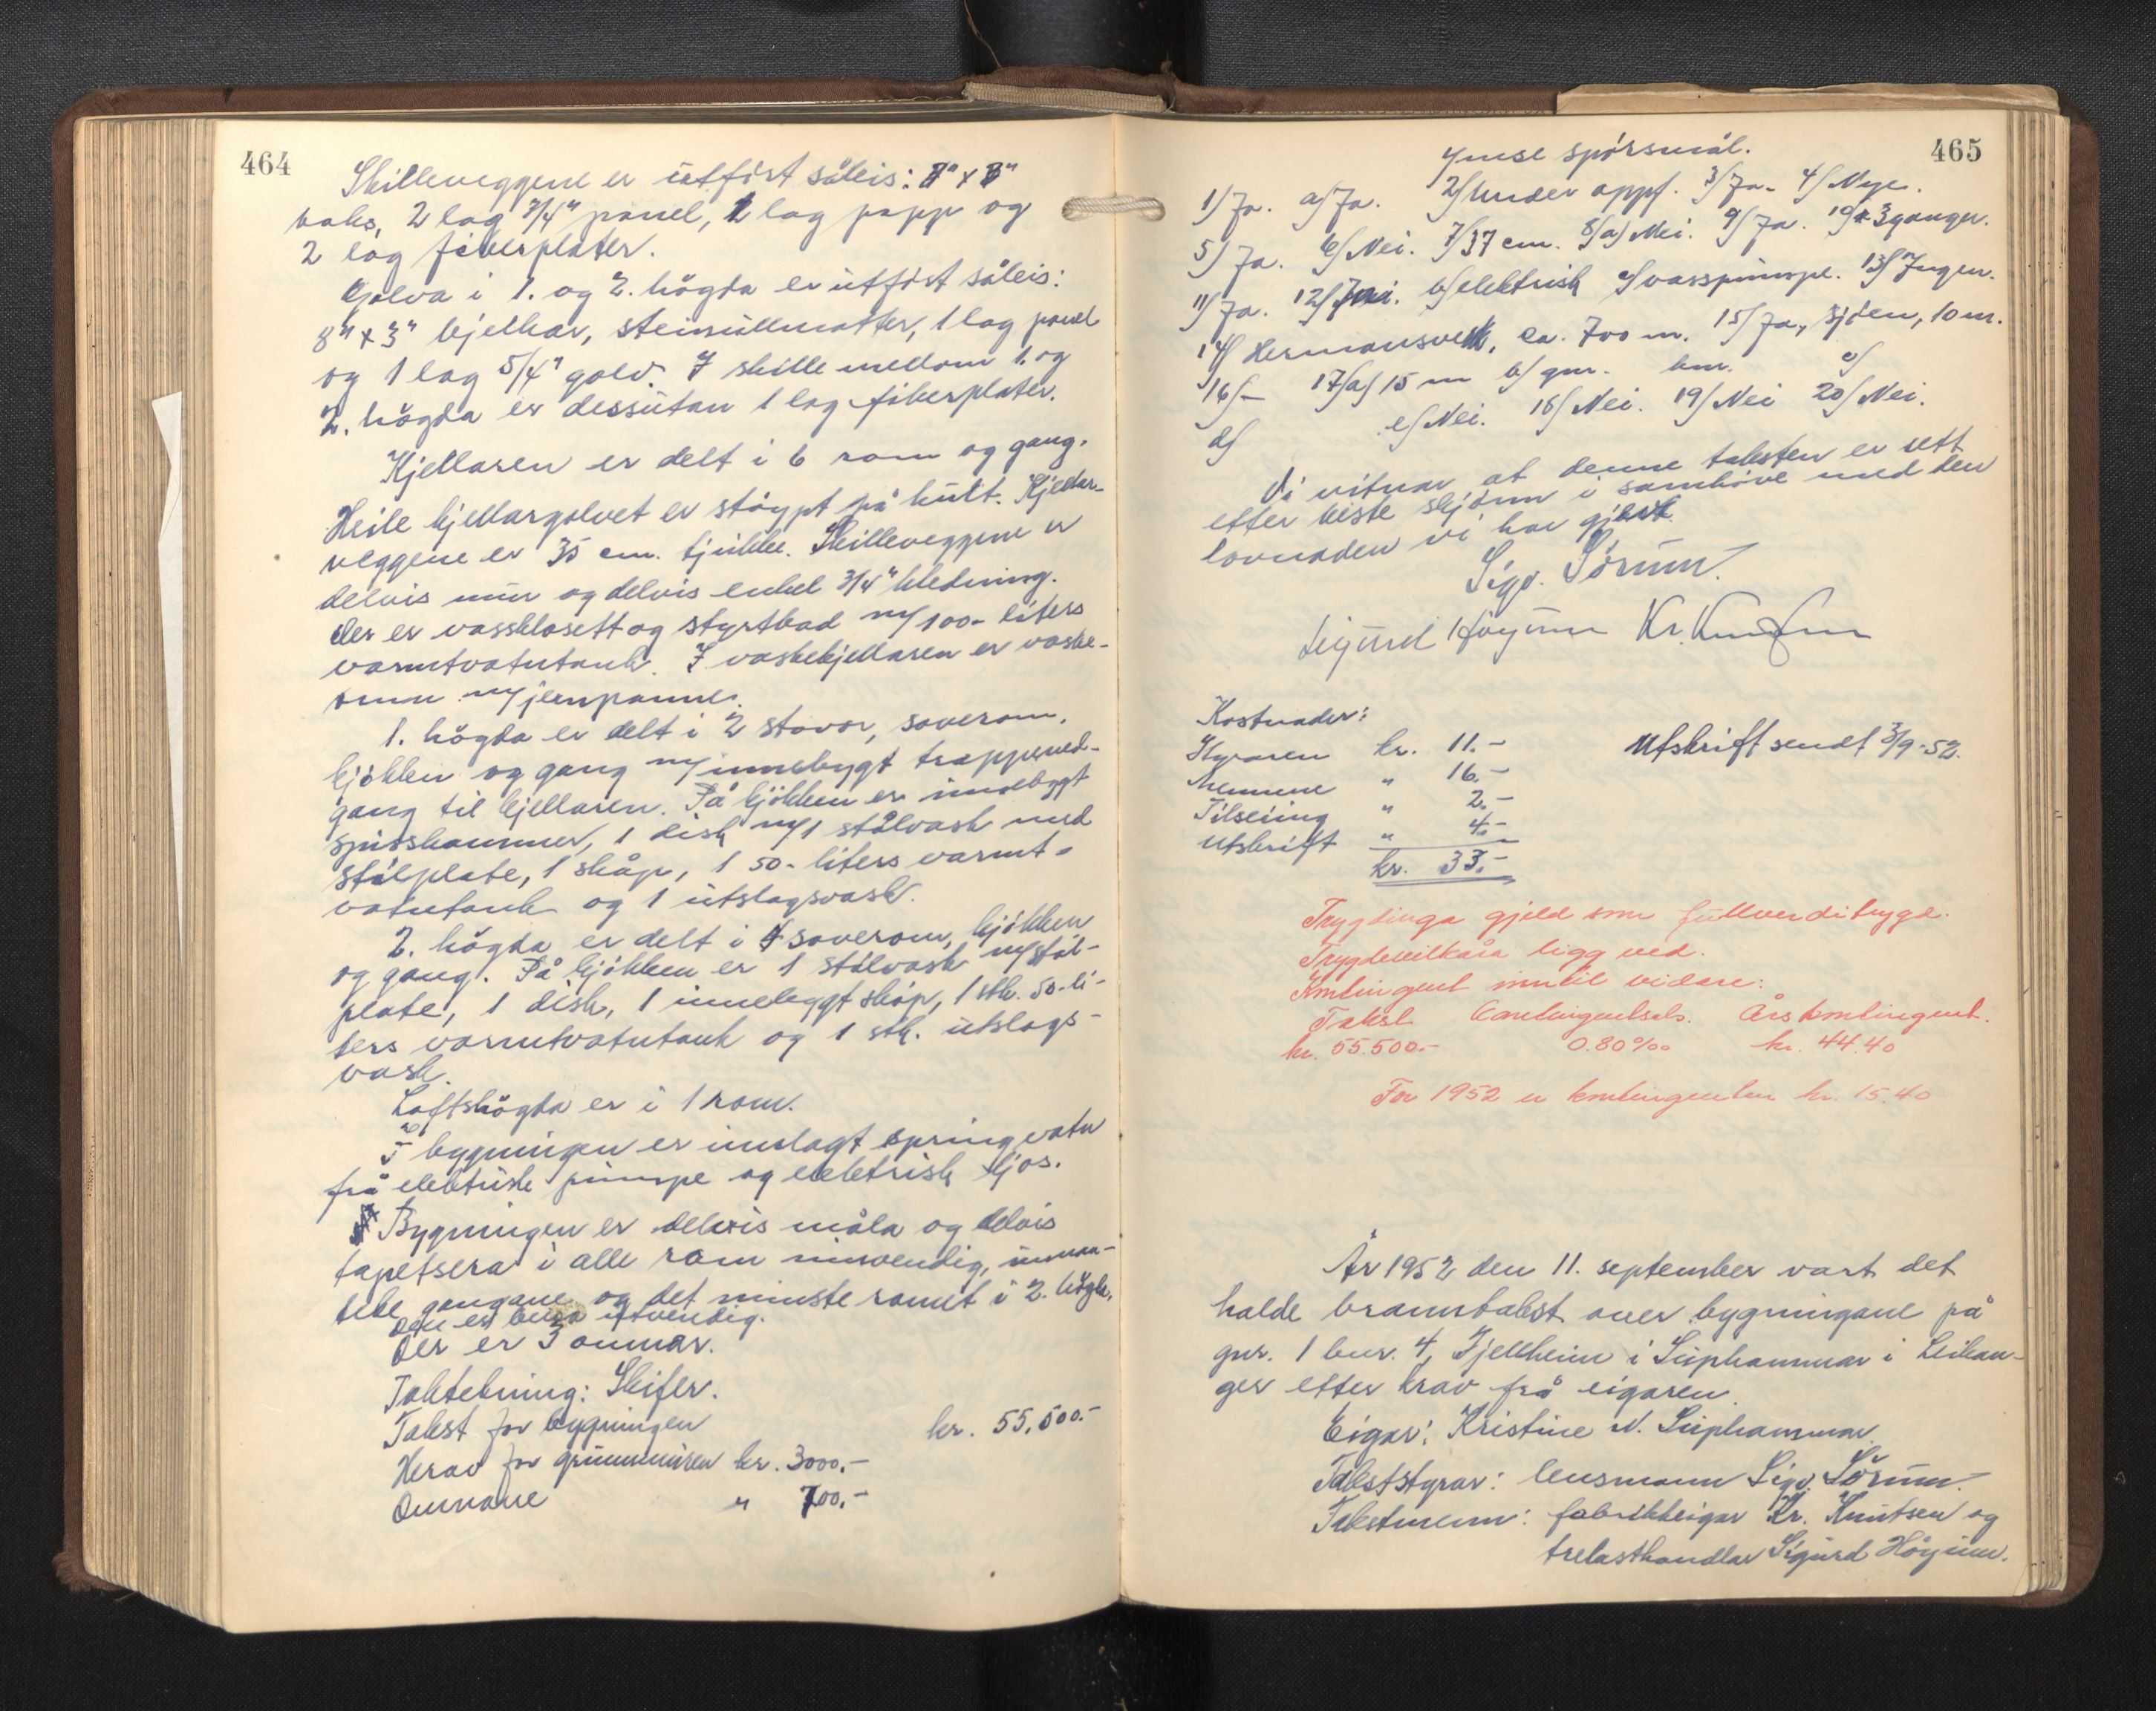 464
Skilleveggene er utført såleis:
baks, 2 lag 3/4" panel, 2 lag papp og
2 lag fiberplater.
Golva i 1. og 2. högda er utført såleis:
8" x 3" bjelkar, steinullmatter, 1 lag panel
og 1 lag 5/4" golv. I skille mellom 1. og
2. högda er dessutan 1 lag fiberplater.
Kjellaren er delt i 6 rom og gang.
Heile kjellargolvet er støypt på kult. Kjellar-
veggene er 35 cm. tjukke. Skilleveggene er
delvis mur og delvis enkel 3/4" kledning.
Der er vassklosett og styrtbad m/100-liters
varmtvatntank. I vaskekjellaren er vaske-
omn m/jernpanne.
1. högda er delt i 2 stovor, soverom,
kjökken og gang m/innebygt trappened-
gang til kjellaren. På kjökken er innebygt
spisskammer, 1 disk m/1 stålvask med
stålplate, 1 skåp, 1 50-liters varmt-
vatntank og 1 utslagsvask.
2. högda er delt i 4 soverom, kjökken
og gang. På kjökken er 1 stålvask m/stål-
plate, 1 disk, 1 innebyggt skåp, 1 stk. 50-li-
ters varmtvatntank og 1 stk. utslags-
vask.
Loftshögda er i 1 rom.
I bygningen er innlagt springvatn
frå elektrisk pumpe og elektrisk ljos.
Bygningen er delvis måla og delvis
tapetsera i alle rom innvendig, unnan-
teke gangane og det minste romet i 2. högda.
Den er beisa utvendig.
Der er 3 omnar.
Taktekning: Skifer.
Takst for bygningen kr. 55.500.-
Herav for grunnmuren kr. 3000.-
Omnane " 700.-
465
Ymse spørsmål.
1/ Ja. a/ Ja. 2/ Under oppf. 3/ Ja. 4/ Nye.
5/ Ja. 6/ Nei. 7/ 37 cm. 8/a/ Nei. 9/ Ja. 10/ 3 ganger.
11/ Ja. 12/ b/ elektrisk c/ vasspumpe. 13/ Ingen.
14/ Hermansverk, ca. 700 m. 15/ Ja, sjøen, 10 m.
16/ - 17/a/ 15 m b/ gm. hm. c/
d/ e/ Nei. 18/ Nei. 19/ Nei 20/ Nei.
Vi vitnar at denne taksten er sett
etter beste skjønn i samhøve med den
lovnaden vi har gjevt.
Sigv. Sørum.
Sigurd Høyum Kr. Knutsen
Kostnader:
Styraren kr. 11.-
Mennene " 16.-
Tilseiing " 2.-
Utskrift " 4.-
kr. 33.-
Utskrift sendt 3/9-52.
Trygdinga gjeld som fullverditrygd.
Trygdevilkåra ligg ved.
Kontingent inntil vidare:
Takst Contingentsats. Årskontingent.
kr. 55.500.- 0.80‰ kr. 44.40
For 1952 er kontingenten kr. 15.40
År 1952 den 11. september vart det
halde branntakst over bygningane på
gnr. 1 bnr. 4, Fjellheim i Suphammar i Leikan-
ger etter krav frå eigaren.
Eigar: Kristine N. Suphammar.
Takststyrar: lensmann Sigv. Sørum.
Takstmenn: fabrikkeigar Kr. Knutsen og
trelasthandlar Sigurd Høyum.